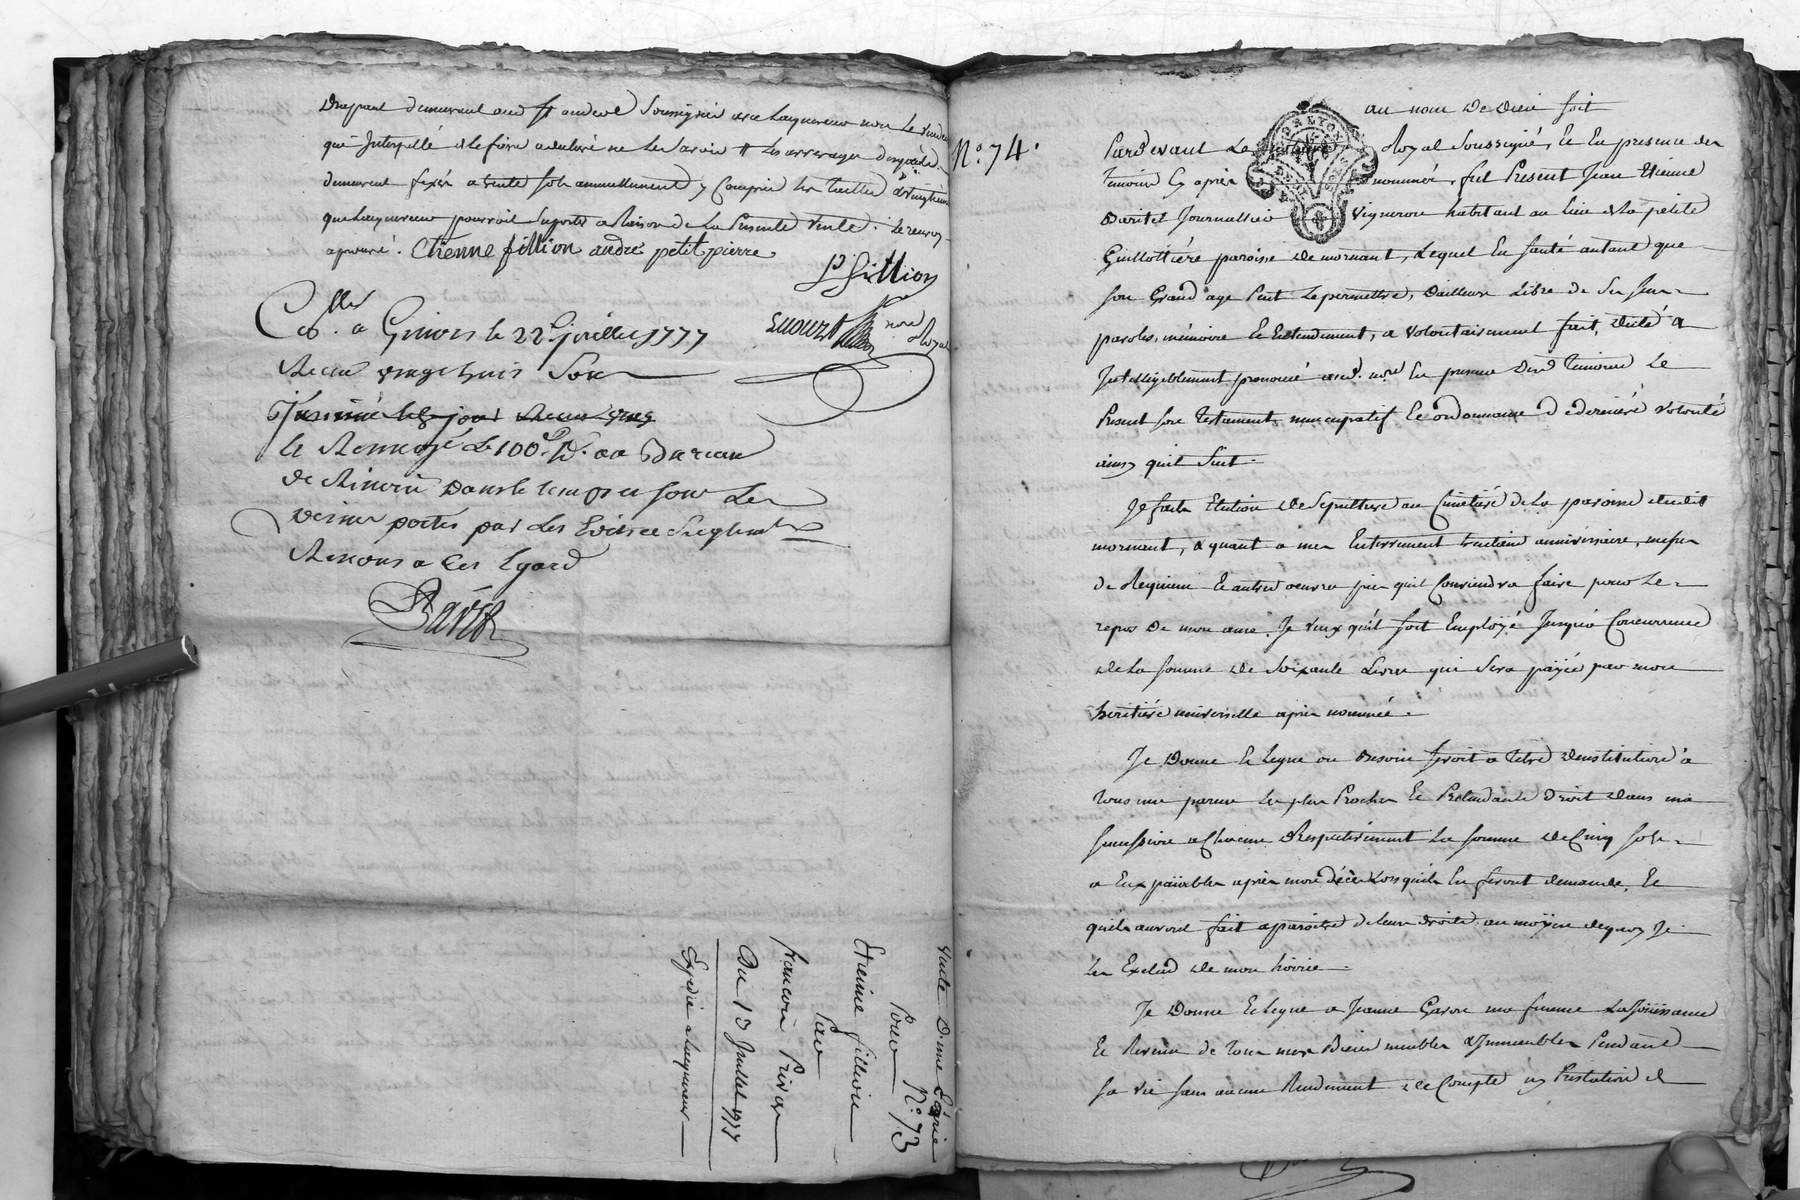 demeurant aud st andeol Soussignés avec Lacquereur non Le vendeur
qui Interpellé de le faire a declaré ne Le Savoir # Les arrerages
demeurent fixés a trente sols annuellement y Compris les tailles & vingtiemes
que Lacquereur pourroit Suporter a Raison de La Presente Vente. Le renvoy
aprouvé. Etienne fillion andré petit pierre
P Fillion
nore Royal
Collé. a Givors le 22e juillet 1777
Recu vingt huit Sols
le Renvoyé Le 100e Dr. au Bureau
de Dans le temps et sous Les
Peines portés par Les Edits et Reglements
Rendus a Cet Egard
Ravet
Vente D'une
Pour N°. 73
Etienne fillion
Par
francois Privas
Du 13 Juillet 1777
Expedié a Lacquereur
N°. 74.
au nom de Dieu soit
Pardevant Le Royal Soussigné, Et En presence des
temoins Cy après nommés, fut Present Jean Etienne
Journallier Vigneron habitant au lieu de La petite
Guillottiére paroisse de mornant, Lequel En Santé autant que
son Grand age Peut Le permettre, d'ailleurs Libre de Ses sens
paroles, mémoire Et Entendement, a volontairement fait, dicté &
Intelligiblement prononcé aud. nore En presence desd temoins Le
Present son testament nuncupatif Et ordonnance de derniére volonté
ainsy quil Suit.
Je fais Election de Sepulture au Cimetiére de La paroisse dudit
mornant, & quant a mes Enterrement trentaine anniversaire, messes
de Requiem Et autres oeuvres pies quil Conviendra faire pour Le
repos de mon ame. Je veux qu'il soit Employé Jusqu'a Concurrence
de La somme de Soixante Livres qui Sera payée par mon
héritiére universelle après nommée.
Je Donne Et Legue ou Besoin Seroit a titre d'institution à
tous mes parens Les plus Proches Et Pretendants droit dans ma
succession & a Chacun d'Eux respectivement La somme de Cinq sols
a Eux païables après mon décès Lorsquils En feront demande, Et
quils auront fait aparoitre de leurs droits au moÿen dequoy Je
Les Exclud de mon hoirie.
Je Donne Et Legue a Jeanne Gavon ma femme La Joüissance
Et Revenu de tous mes Biens meubles & Immeubles Pendant
sa vie sans aucun Rendement de Compte ny Prestation de